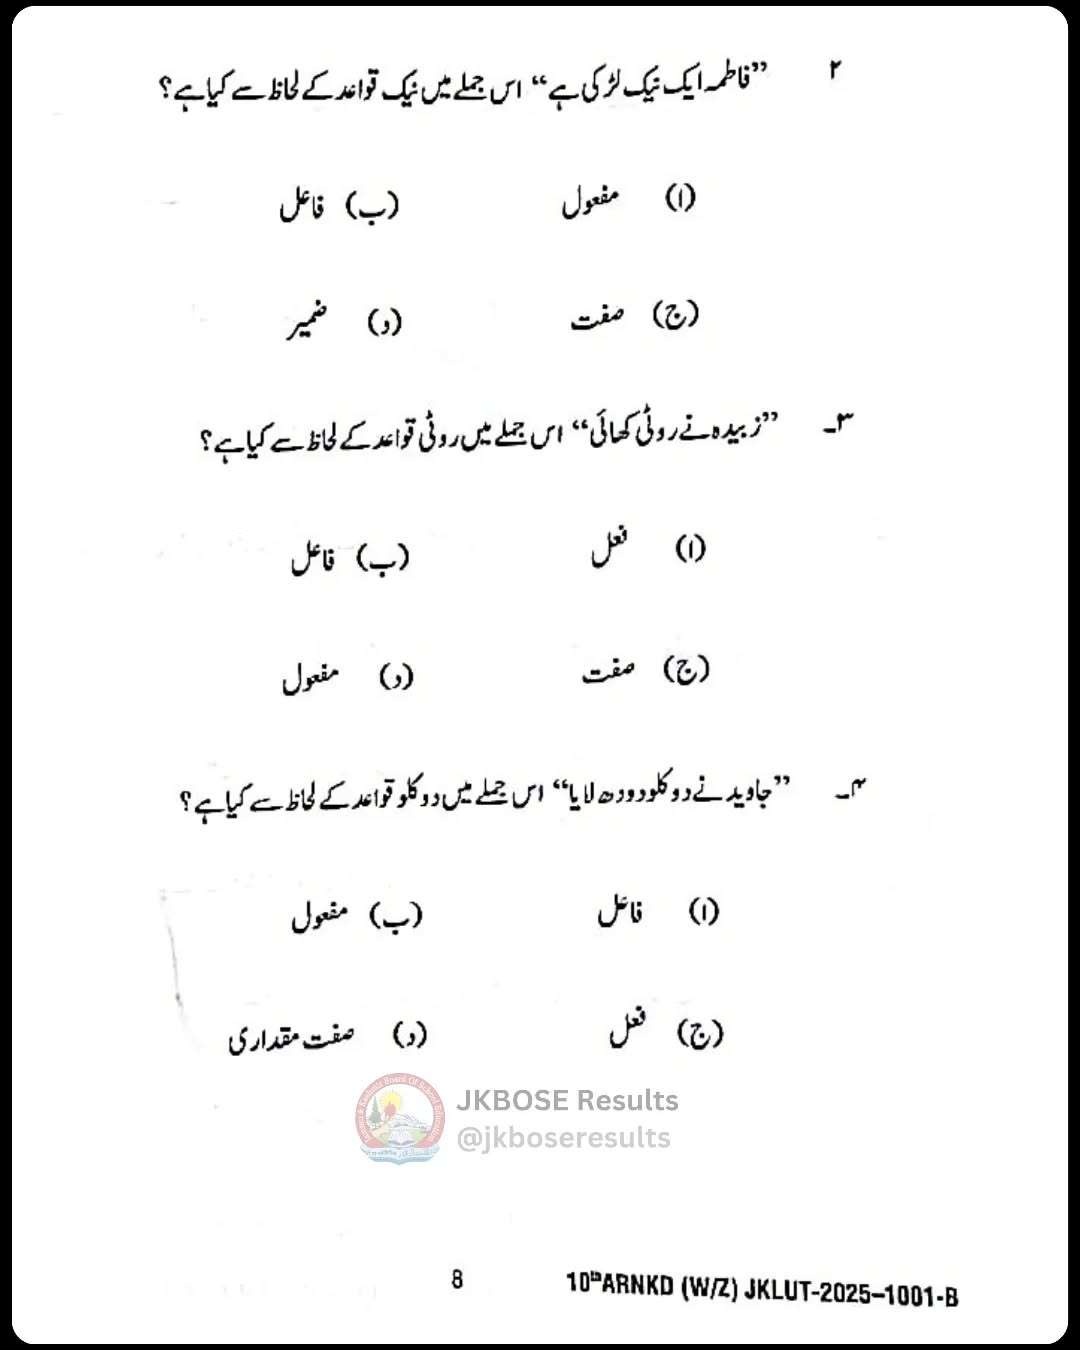 ۲ ”فاطمہ ایک نیک لڑکی ہے“ اس جملے میں نیک قواعد کے لحاظ سے کیا ہے؟
(ا) مفعول (ب) فاعل
(ج) صفت (د) ضمیر
۳۔ ”زبیدہ نے روٹی کھائی“ اس جملے میں روٹی قواعد کے لحاظ سے کیا ہے؟
(ا) فعل (ب) فاعل
(ج) صفت (د) مفعول
۴۔ ”جاوید نے دو کلو دودھ لایا“ اس جملے میں دو کلو قواعد کے لحاظ سے کیا ہے؟
(ا) فاعل (ب) مفعول
(ج) فعل (د) صفت مقداری
JKBOSE Results
@jkboseresults
8 10thARNKD (W/Z) JKLUT-2025–1001-B